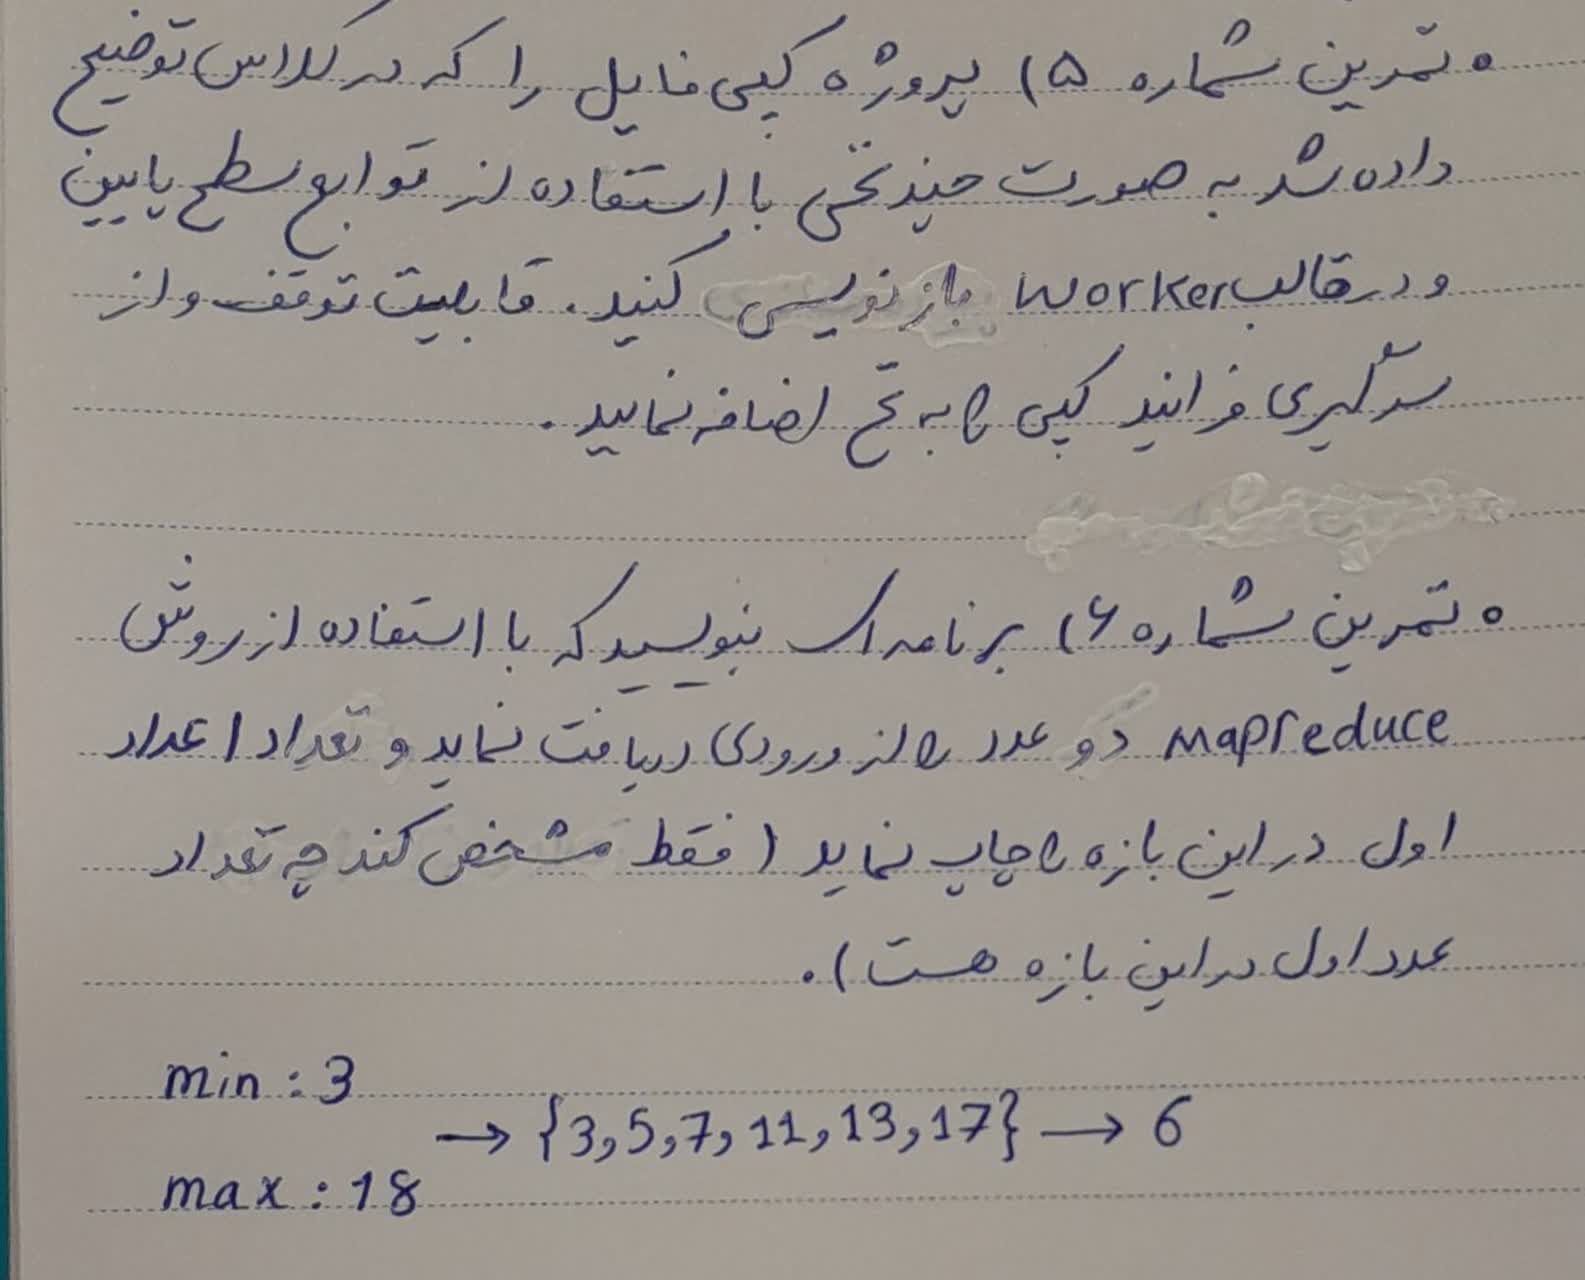 • تمرین شماره ۵) پروژه کپی فایل را که در کلاس توضیح
داده شد به صورت چندنخی با استفاده از توابع سطح پایین
و در قالب Worker بازنویسی کنید. قابلیت توقف و از
سرگیری فرایند کپی را به نخ اضافه نمایید.
• تمرین شماره ۶) برنامه‌ای بنویسید که با استفاده از روش
mapreduce دو عدد را از ورودی دریافت نماید و تعداد اعداد
اول در این بازه را چاپ نماید (فقط مشخص کند چه تعداد
عدد اول در این بازه هست).
min : 3
→ {3,5,7,11,13,17} → 6
max : 18